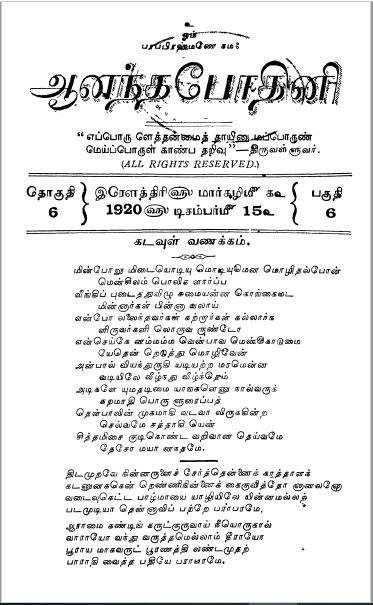 உ
ஓம்
பரப்பிரஹ்மணே நம:
ஆனந்தபோதினி
“எப்பொரு ளெத்தன்மைத் தாயினு மப்பொருண்
மெய்ப்பொருள் காண்ப தறிவு”—திருவள்ளுவர்.
(ALL RIGHTS RESERVED.)
தொகுதி 6
இரௌத்திரி௵ மார்கழிமீ க௨
1920௵ டிசம்பர்மீ 15௨
பகுதி 6
கடவுள் வணக்கம்.
மின்போலு மிடையொடியு மொடியுமென மொழிதல்போன்
மென்சிலம் பொலிக ளார்ப்ப
வீங்கிப் புடைத்துவிழு சுமையன்ன கொங்கைமட
மின்னார்கள் பின்னா வலாய்
என்போ லலைந்தவர்கள் கற்றார்கள் கல்லார்க
ளிருவர்களி லொருவ ருண்டோ
என்செய்கே னம்மம்ம வென்பாவ மென்கொடுமை
யேதென் றெடுத்து மொழிவேன்
அன்பால் வியந்துருகி யடியற்ற மரமென்ன
வடியிலே வீழ்ந்து வீழ்ந்தெம்
அடிகளே யுமதடிமை யாங்களெனு நால்வருக்
கறமாதி பொரு ளுரைப்பத்
தென்பாலின் முகமாகி வடவா லிருக்கின்ற
செல்வமே சத்தாகி யென்
சித்தமிசை குடிகொண்ட வறிவான தெய்வமே
தேசோ மயா னந்தமே.
திடமுறவே நின்னருளைச் சேர்த்தென்னைக் காத்தாளக்
கடனுனக்கென் றெண்ணிநின்னைக் கைகுவித்தோ னானலனோ
வடைவுகெட்ட பாழ்மாயை யாழியிலே யின்னமல்லற்
படமுடியா தென்னாவிப் பற்றே பராபரமே,
ஆராமை கண்டிங் கருட்குருவாய் நீயொருகால்
வாராயோ வந்து வருத்தமெல்லாந் தீராயோ
பூராய மாகவருட் பூரணத்தி லண்டமுதற்
பாராதி வைத்த பதியே பராபரமே.